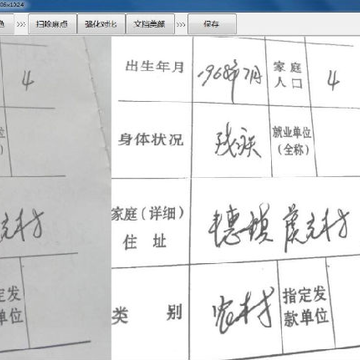 06x1024
色 >>> 扫除麻点 >>> 强化对比 >>> 文档美颜 >>> 保存
4 出生年月 1968年7月 家庭人口 4
位 身体状况 残疾 就业单位
） （全称）
家庭（详细）
克村 住址 德镇 克村
定发 类别 农村 指定发
单位 款单位